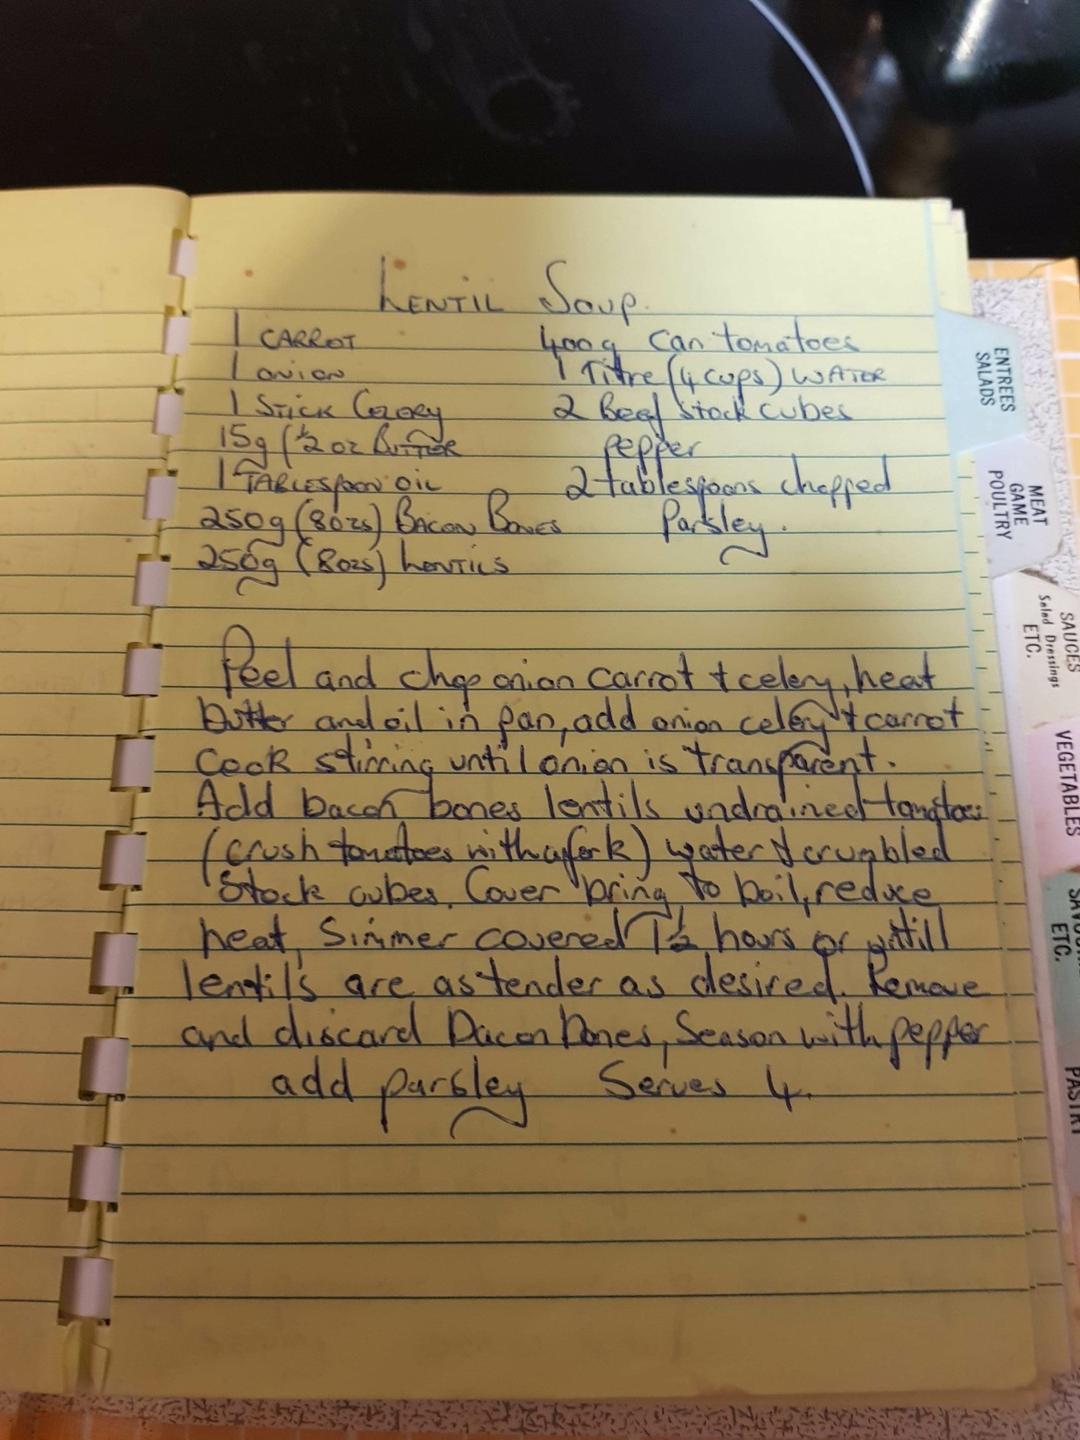 LENTIL SOUP.
1 CARROT
1 ONION
1 STICK CELERY
15g (½ oz BUTTER
1 TABLESPOON OIL
250g (8ozs) BACON BONES
250g (8ozs) LENTILS
400g Can tomatoes
1 litre (4 cups) WATER
2 Beef stock cubes
pepper
2 tablespoons chopped
Parsley.
Peel and chop onion carrot + celery, heat
butter and oil in pan, add onion celery + carrot
Cook stirring until onion is transparent.
Add bacon bones lentils undrained tomatoes
(crush tomatoes with a fork) water + crumbled
stock cubes. Cover bring to boil, reduce
heat, Simmer covered 1½ hours or untill
lentils are as tender as desired. Remove
and discard Bacon bones, Season with pepper
add parsley Serves 4.
ENTREES
SALADS
MEAT
GAME
POULTRY
SAUCES
Salad Dressings
ETC.
VEGETABLES
ETC.
PASTRY